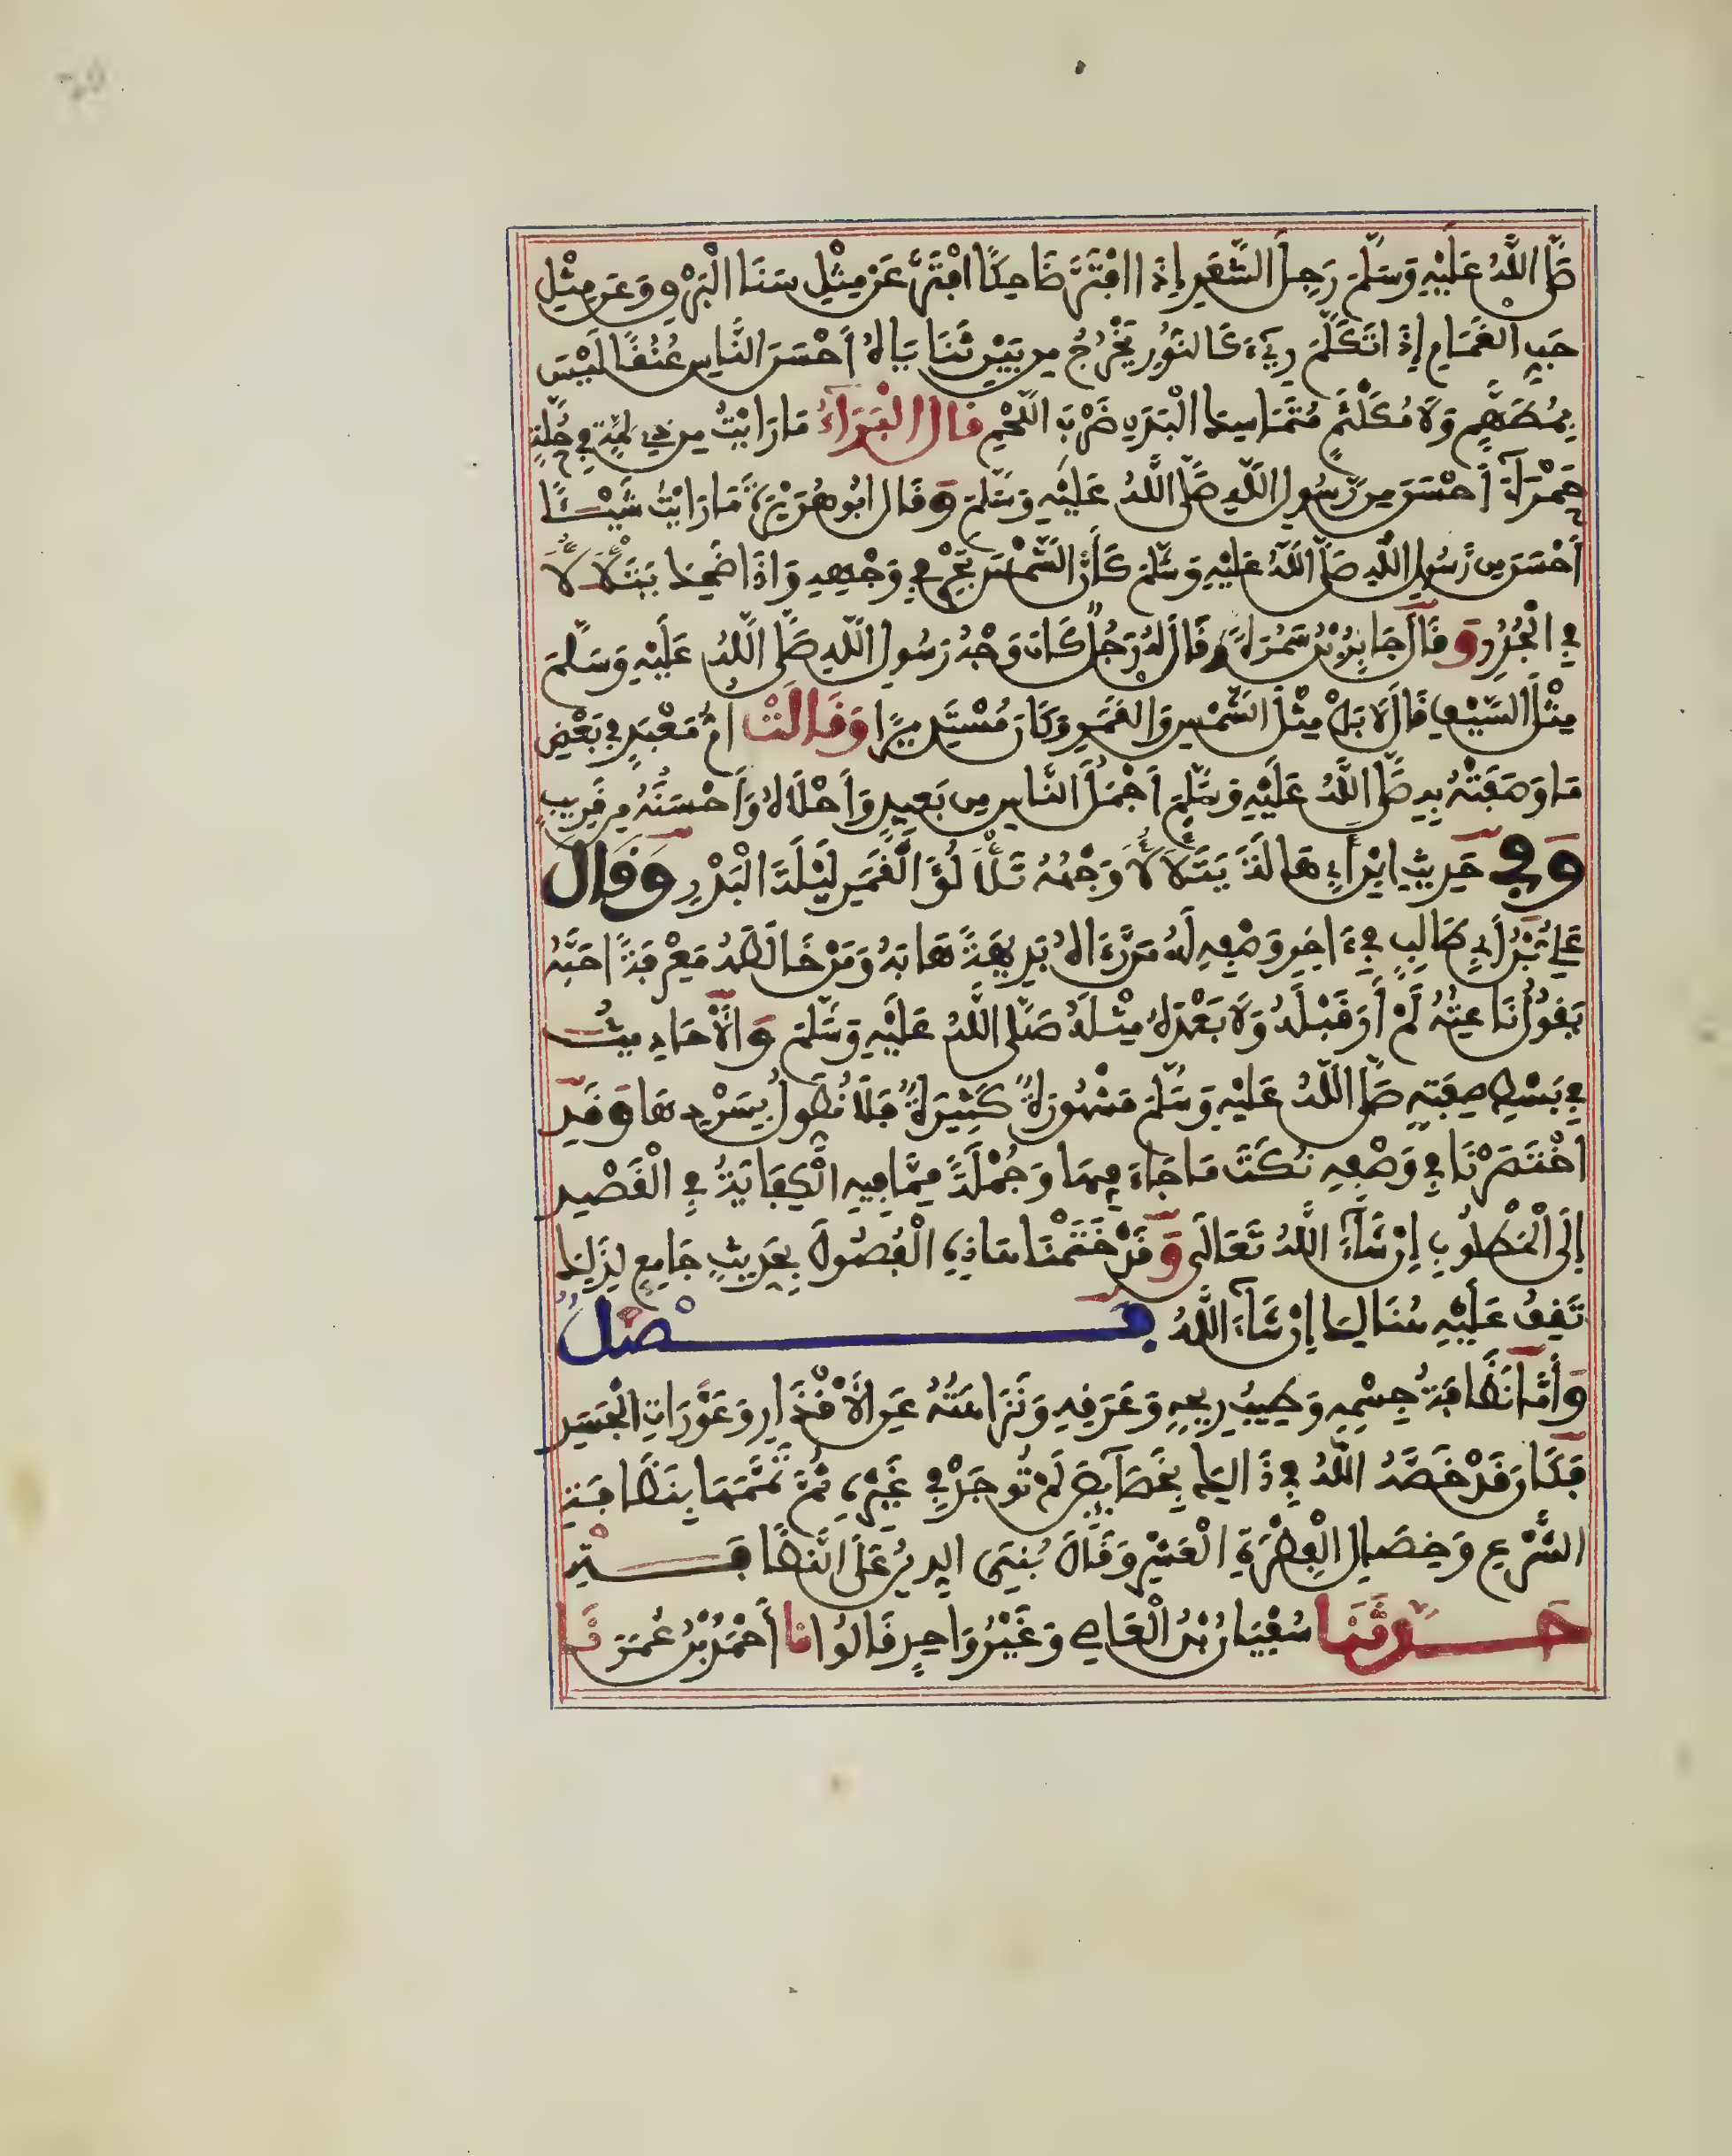 صَلَّى اللَّهُ عَلَيْهِ وَسَلَّمَ رَجِلَ الشَّعَرِ إِذَا افْتَرَّ ضَاحِكًا افْتَرَّ عَنْ مِثْلِ سَنَا الْبَرْقِ وَعَن مِثْلِ
حَبِّ الْغَمَامِ إِذَا تَكَلَّمَ رِيءَ كَالنُّورِ يَخْرُجُ مِن بَيْنِ ثَنَايَاهُ أَحْسَنَ النَّاسِ عُنُقًا لَيْسَ
بِمُطَهَّمٍ وَلَا مُكَلْثَمٍ مُتَمَاسِكَ الْبَدَنِ ضَرْبَ اللَّحْمِ قَالَ الْبَرَآءُ مَا رَأَيْتُ مِن ذِي لِمَّةٍ فِي حُلَّةٍ
حَمْرَاءَ أَحْسَنَ مِن رَّسُولِ اللَّهِ صَلَّى اللَّهُ عَلَيْهِ وَسَلَّمَ وَقَالَ أَبُو هُرَيْرَةَ مَا رَأَيْتُ شَيْئًا
أَحْسَنَ مِن رَّسُولِ اللَّهِ صَلَّى اللَّهُ عَلَيْهِ وَسَلَّمَ كَأَنَّ الشَّمْسَ تَجْرِي فِي وَجْهِهِ وَإِذَا ضَحِكَ يَتَلَأْلَأُ
فِي الْجُدُرِ وَقَالَ جَابِرُ بْنُ سَمُرَةَ وَقَالَ لَهُ رَجُلٌ كَانَ وَجْهُ رَسُولِ اللَّهِ صَلَّى اللَّهُ عَلَيْهِ وَسَلَّمَ
مِثْلَ السَّيْفِ قَالَ لَا بَلْ مِثْلَ الشَّمْسِ وَالْقَمَرِ وَكَانَ مُسْتَدِيرًا وَقَالَتْ أُمُّ مَعْبَدٍ فِي بَعْضِ
مَا وَصَفَتْهُ بِهِ صَلَّى اللَّهُ عَلَيْهِ وَسَلَّمَ أَجْمَلُ النَّاسِ مِن بَعِيدٍ وَأَحْلَاهُ وَأَحْسَنُهُ مِن قَرِيبٍ
وَفِي حَدِيثِ ابْنِ أَبِي هَالَةَ يَتَلَأْلَأُ وَجْهُهُ تَلَأْلُؤَ الْقَمَرِ لَيْلَةَ الْبَدْرِ وَقَالَ
عَلِيُّ بْنُ أَبِي طَالِبٍ فِي ءَاخِرِ وَصْفِهِ لَهُ مَن رَّءَاهُ بَدِيهَةً هَابَهُ وَمَنْ خَالَطَهُ مَعْرِفَةً أَحَبَّهُ
يَقُولُ نَاعِتُهُ لَمْ أَرَ قَبْلَهُ وَلَا بَعْدَهُ مِثْلَهُ صَلَّى اللَّهُ عَلَيْهِ وَسَلَّمَ وَالْأَحَادِيثُ
فِي بَسْطِ صِفَتِهِ صَلَّى اللَّهُ عَلَيْهِ وَسَلَّمَ مَشْهُورَةٌ كَثِيرَةٌ فَلَا نُطَوِّلُ بِسَرْدِهَا وَقَدِ
اخْتَصَرْنَا فِي وَصْفِهِ نُكَتَ مَا جَاءَ فِيهَا وَجُمْلَةً مِمَّا فِيهِ الْكِفَايَةُ فِي الْقَصْدِ
إِلَى الْمَطْلُوبِ إِن شَآءَ اللَّهُ تَعَالَى وَقَدْ خَتَمْنَا هَاذِهِ الْفُصُولَ بِحَدِيثٍ جَامِعٍ لِذَلِكَ
تَقِفُ عَلَيْهِ هُنَالِكَ إِن شَآءَ اللَّهُ فَصْلٌ
وَأَمَّا نَظَافَةُ جِسْمِهِ وَطِيبُ رِيحِهِ وَعَرَقِهِ وَنَزَاهَتُهُ عَنِ الْأَقْذَارِ وَعَوْرَاتِ الْجَسَدِ
فَكَانَ قَدْ خَصَّهُ اللَّهُ فِي ذَالِكَ بِخَصَآئِصَ لَمْ تُوجَدْ فِي غَيْرِهِ ثُمَّ تَمَّمَهَا بِنَظَافَةِ
الشَّرْعِ وَخِصَالِ الْفِطْرَةِ الْعَشْرِ وَقَالَ بُنِيَ الدِّينُ عَلَى النَّظَافَةِ
حَدَّثَنَا سُفْيَانُ بْنُ الْعَاصِي وَغَيْرُ وَاحِدٍ قَالُوا نَا أَحْمَدُ بْنُ عُمَرَ نَا